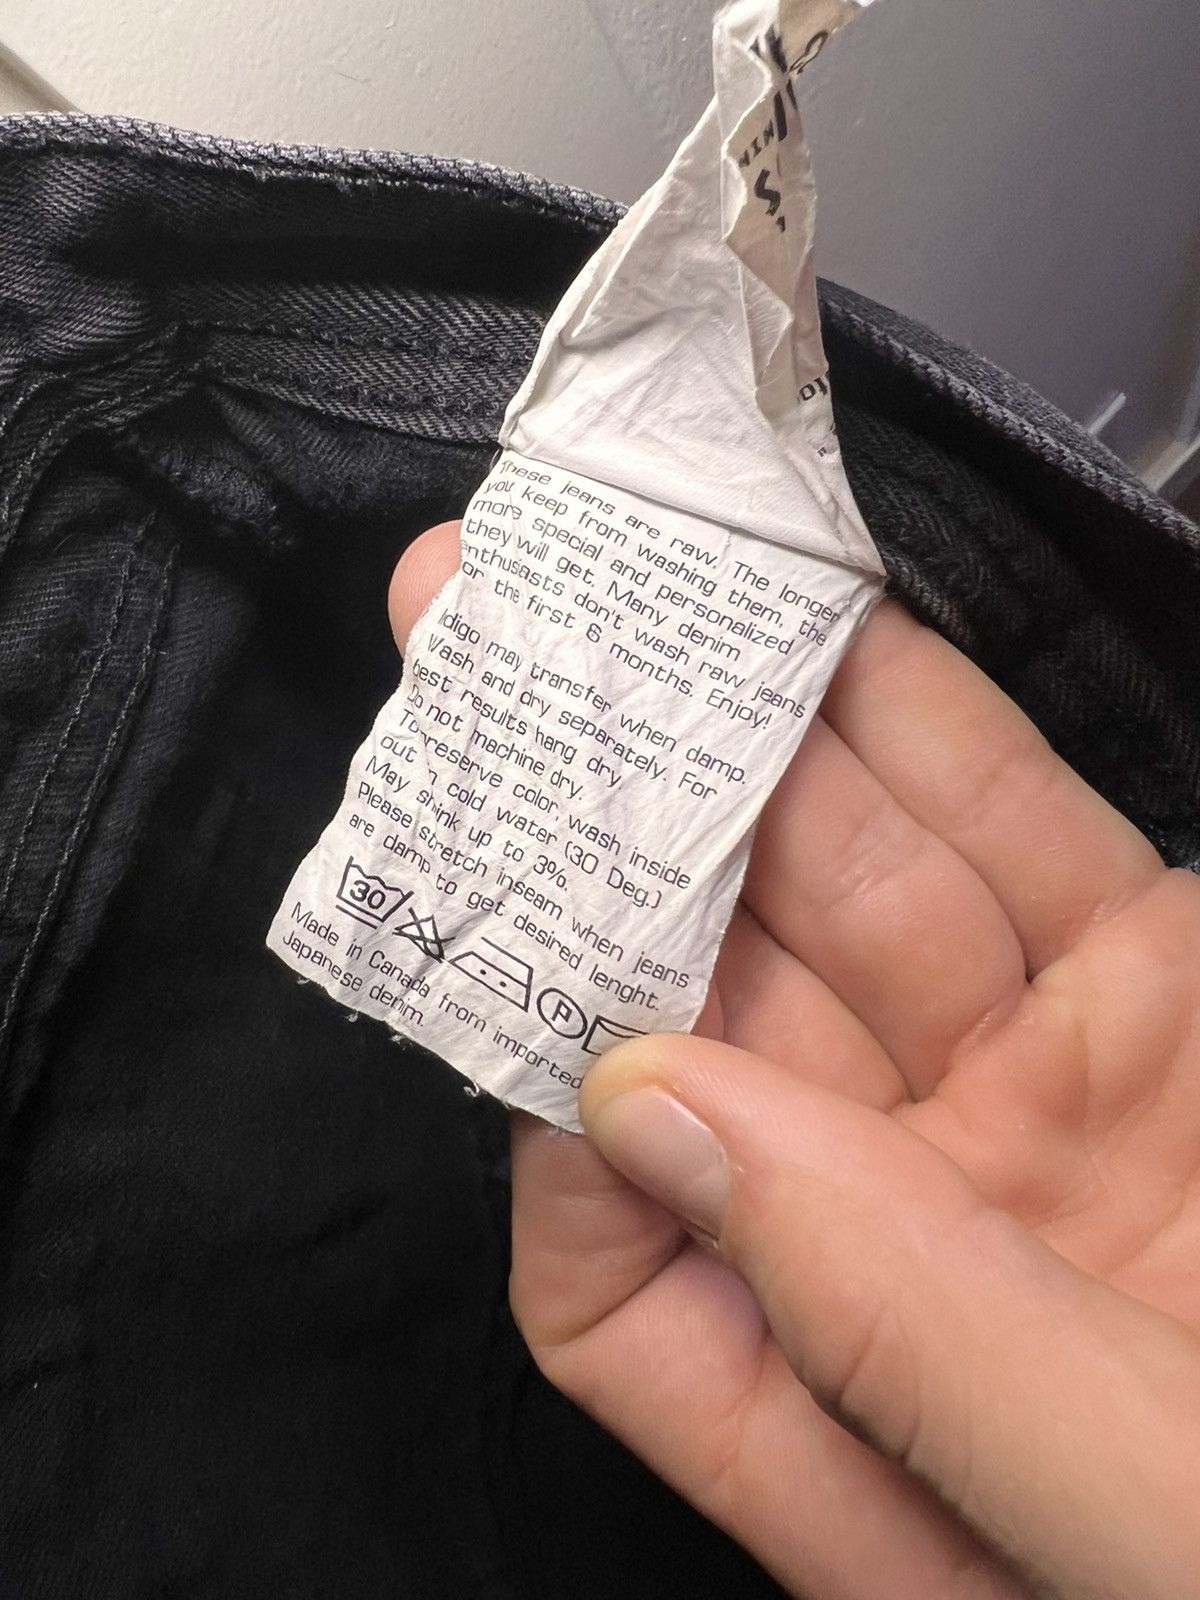 These jeans are raw. The longer
you keep from washing them, the
more special and personalized
they will get. Many denim
enthusiasts don't wash raw jeans
or the first 6 months. Enjoy!
Idigo may transfer when damp.
Wash and dry separately. For
best results hang dry.
Do not machine dry.
To reserve color, wash inside
out n cold water (30 Deg.)
May shink up to 3%.
Please stretch inseam when jeans
are damp to get desired lenght.
30 P
Made in Canada from imported
Japanese denim.